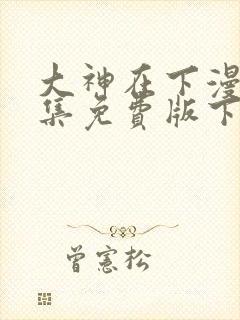 大神在下漫
集免费版下
曾憲松